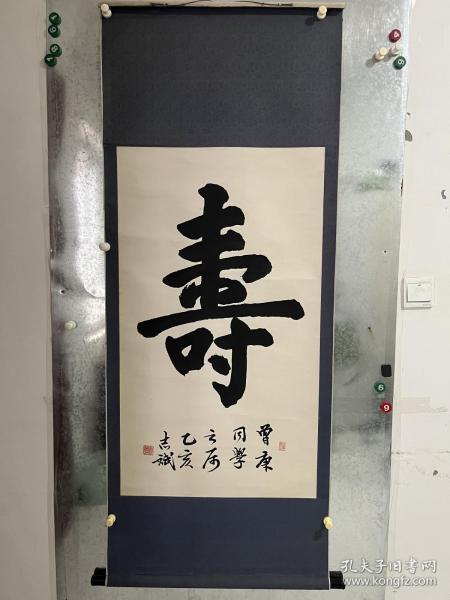 壽
曾庚
同學
之属
乙亥
志斌
孔夫子旧书网
www.kongfz.com
6
9